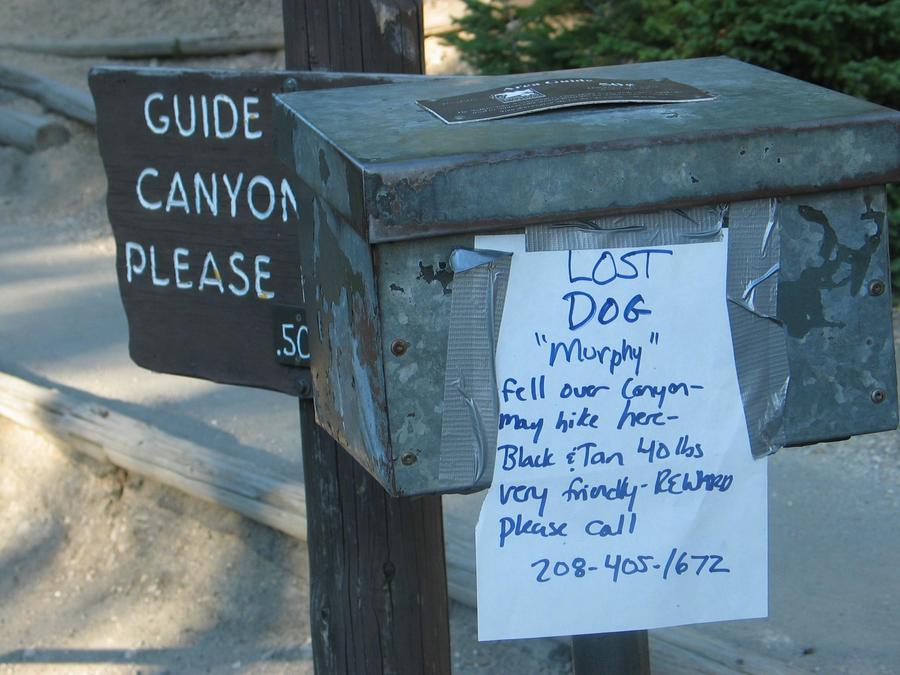 GUIDE
CANYON
PLEASE
.50
LOST
DOG
"Murphy"
fell over Canyon-
may hike here-
Black & Tan 40 lbs
very friendly - REWARD
please call
208-405-1672